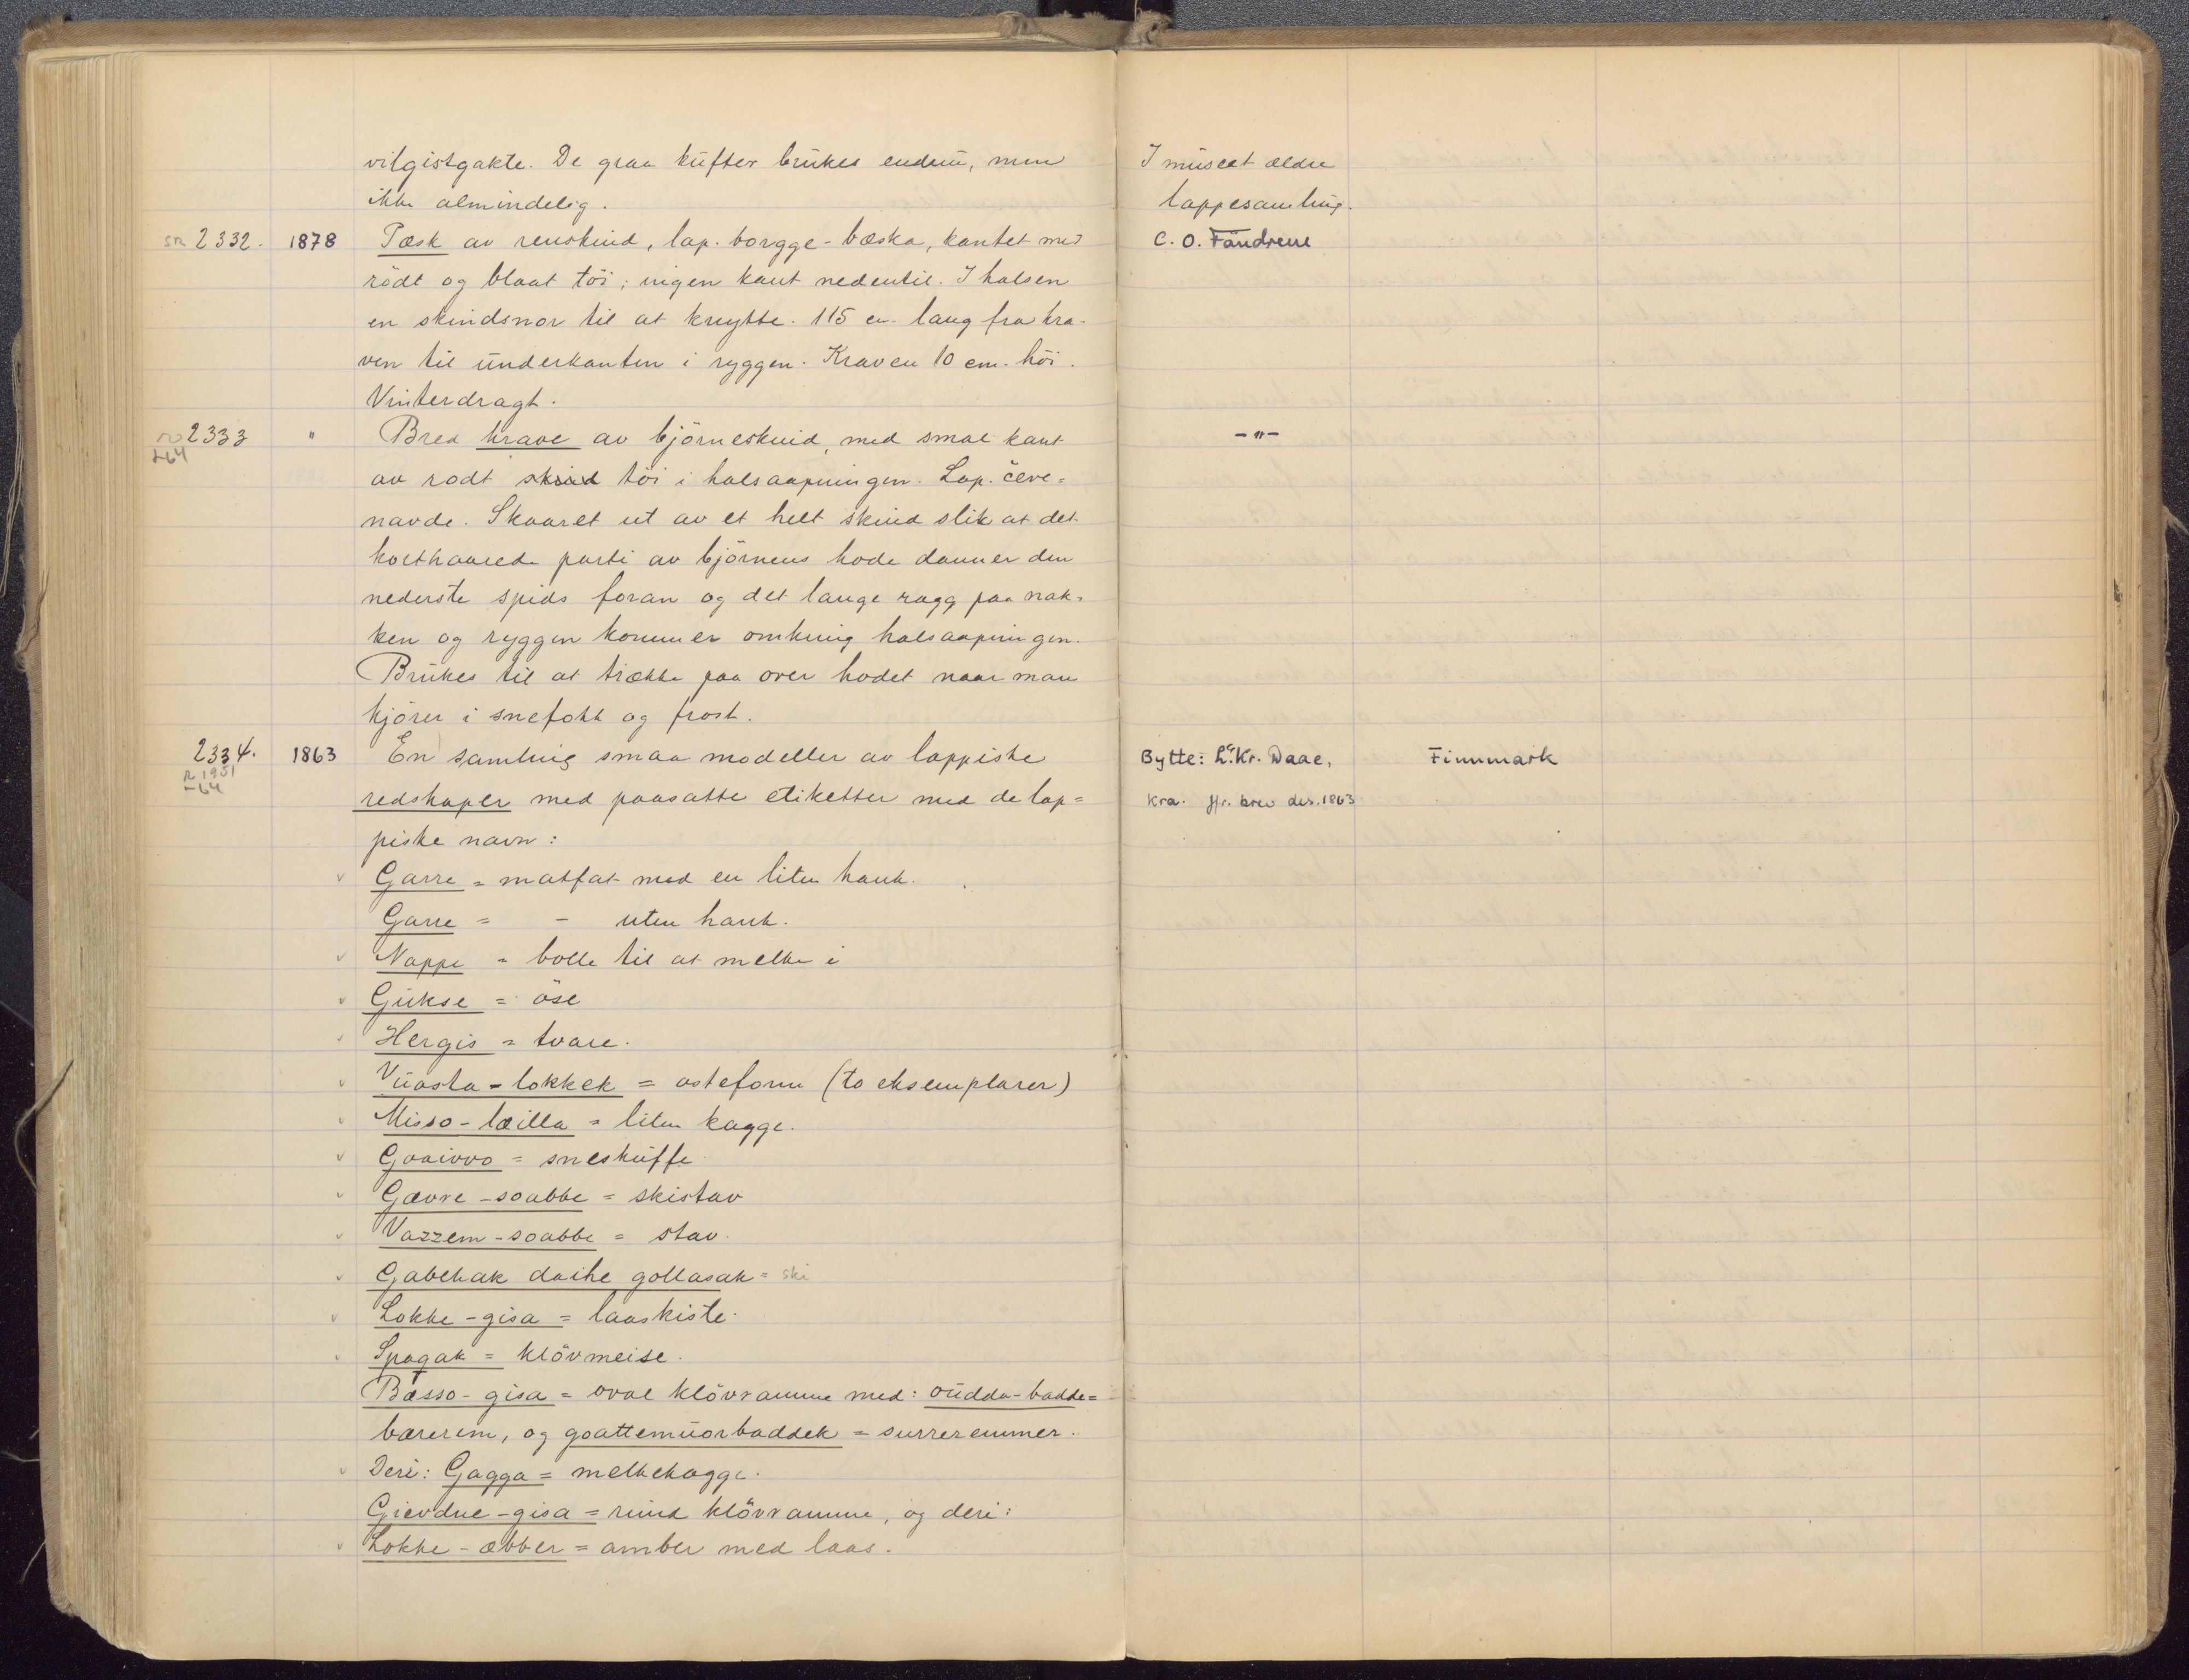 vilgistgakte. De graa kufter brukes endnu, men
ikke almindelig.
I museet ældre
lappesamling.
sn 2332. 1878 Pæsk av renskind, lap. borgge-bæska, kantet med
C. O. Fandrem
rödt og blaat töi; ingen kant nedentil. I halsen
en skindsnor til at knytte. 115 cm. lang fra kra-
ven til underkanten i ryggen. Kraven 10 cm. höi.
Vinterdragt.
2333 " Bred krave av björneskind, med smal kant
-"-
-64
av rødt skind töi i halsaapningen. Lap. čeve=
navde. Skaaret ut av et helt skind slik at det
korthaarede parti av björnens hode danner den
nederste spids foran og det lange ragg paa nak=
ken og ryggen kommer omkring halsaapningen.
Brukes til at trække paa over hodet naar man
kjörer i snefokk og frost.
2334. 1863 En samling smaa modeller av lappiske
Bytte: L. Kr. Daae, Finnmark
R 1951
-64
redskaper med paasatte etiketter med de lap=
Kra. jfr. brev des. 1863
piske navn:
v Garre = matfat med en liten hank.
Garre = - uten hank.
v Nappe = bolle til at melke i
v Gukse = öse
v Hergis = tvare.
v Vuosta-lokkek = osteform (to eksemplarer)
v Misso-læilla = liten kagge.
v Goaivvo = sneskuffe
v Gævre-soabbe = skistav
v Vazzem-soabbe = stav.
v Gabehak daihe gollasak = ski
v Lokke-gisa = laaskiste.
v Spagak = klövmeise.
Basso-gisa = oval klövramme med: oudda-badde=
bærerem, og goattemuorbaddek = surreremmer.
v Deri: Gagga = melkekagge.
Gievdne-gisa = rund klövramme, og deri:
v Lokke-æbber = amber med laas.